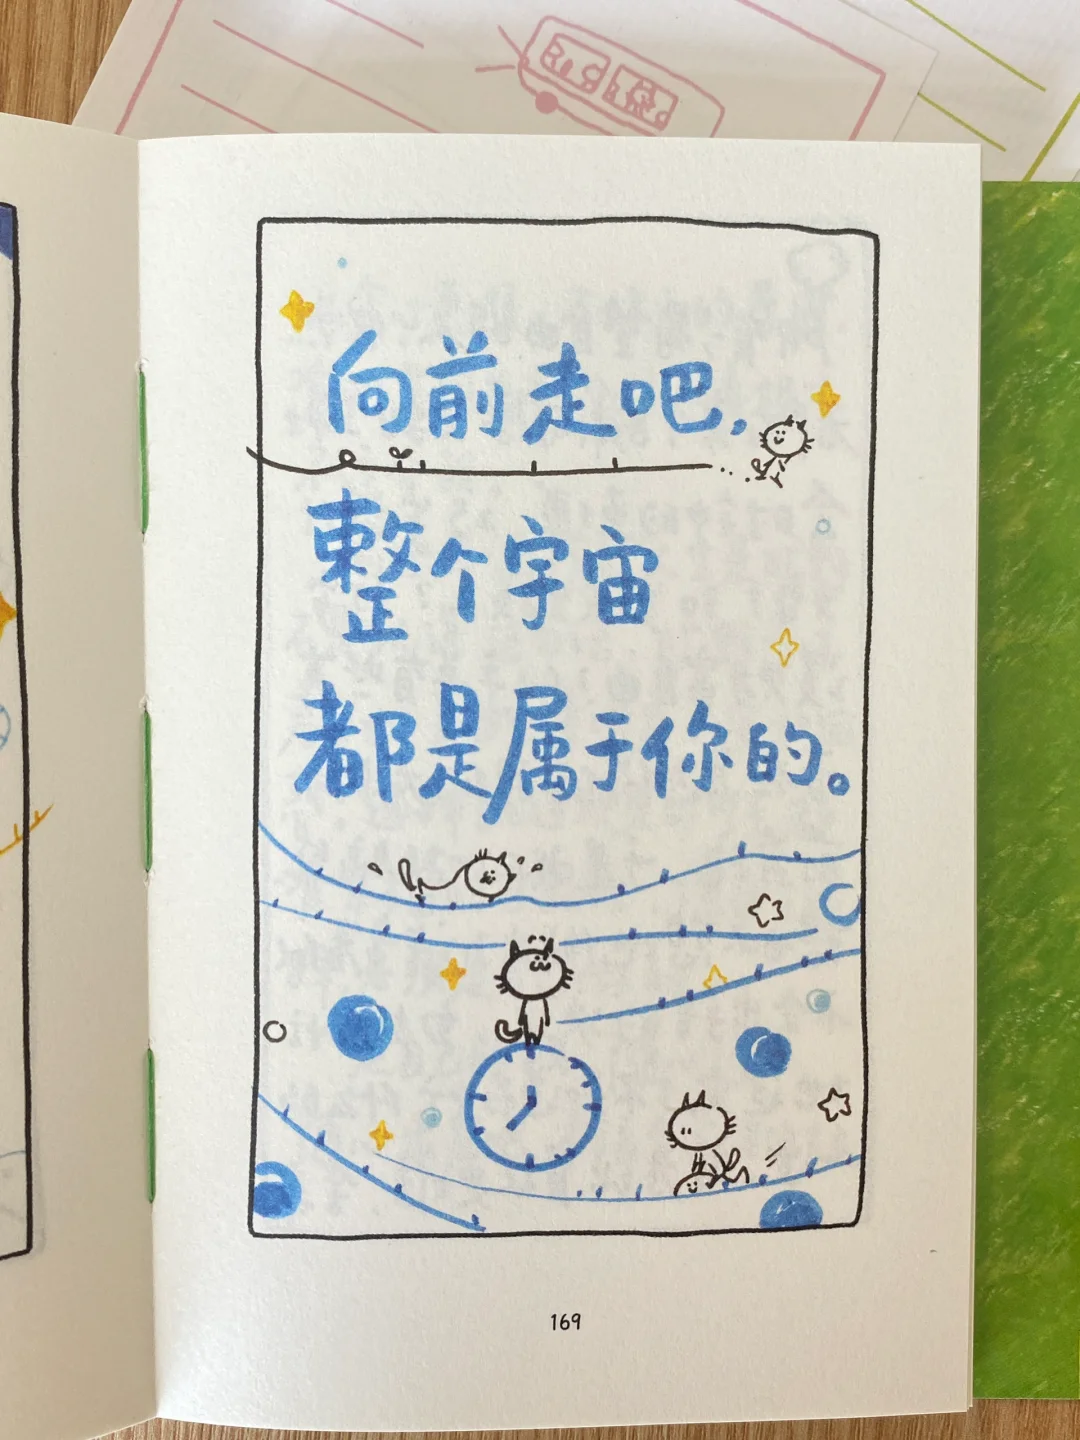 向前走吧，
整个宇宙
都是属于你的。
169